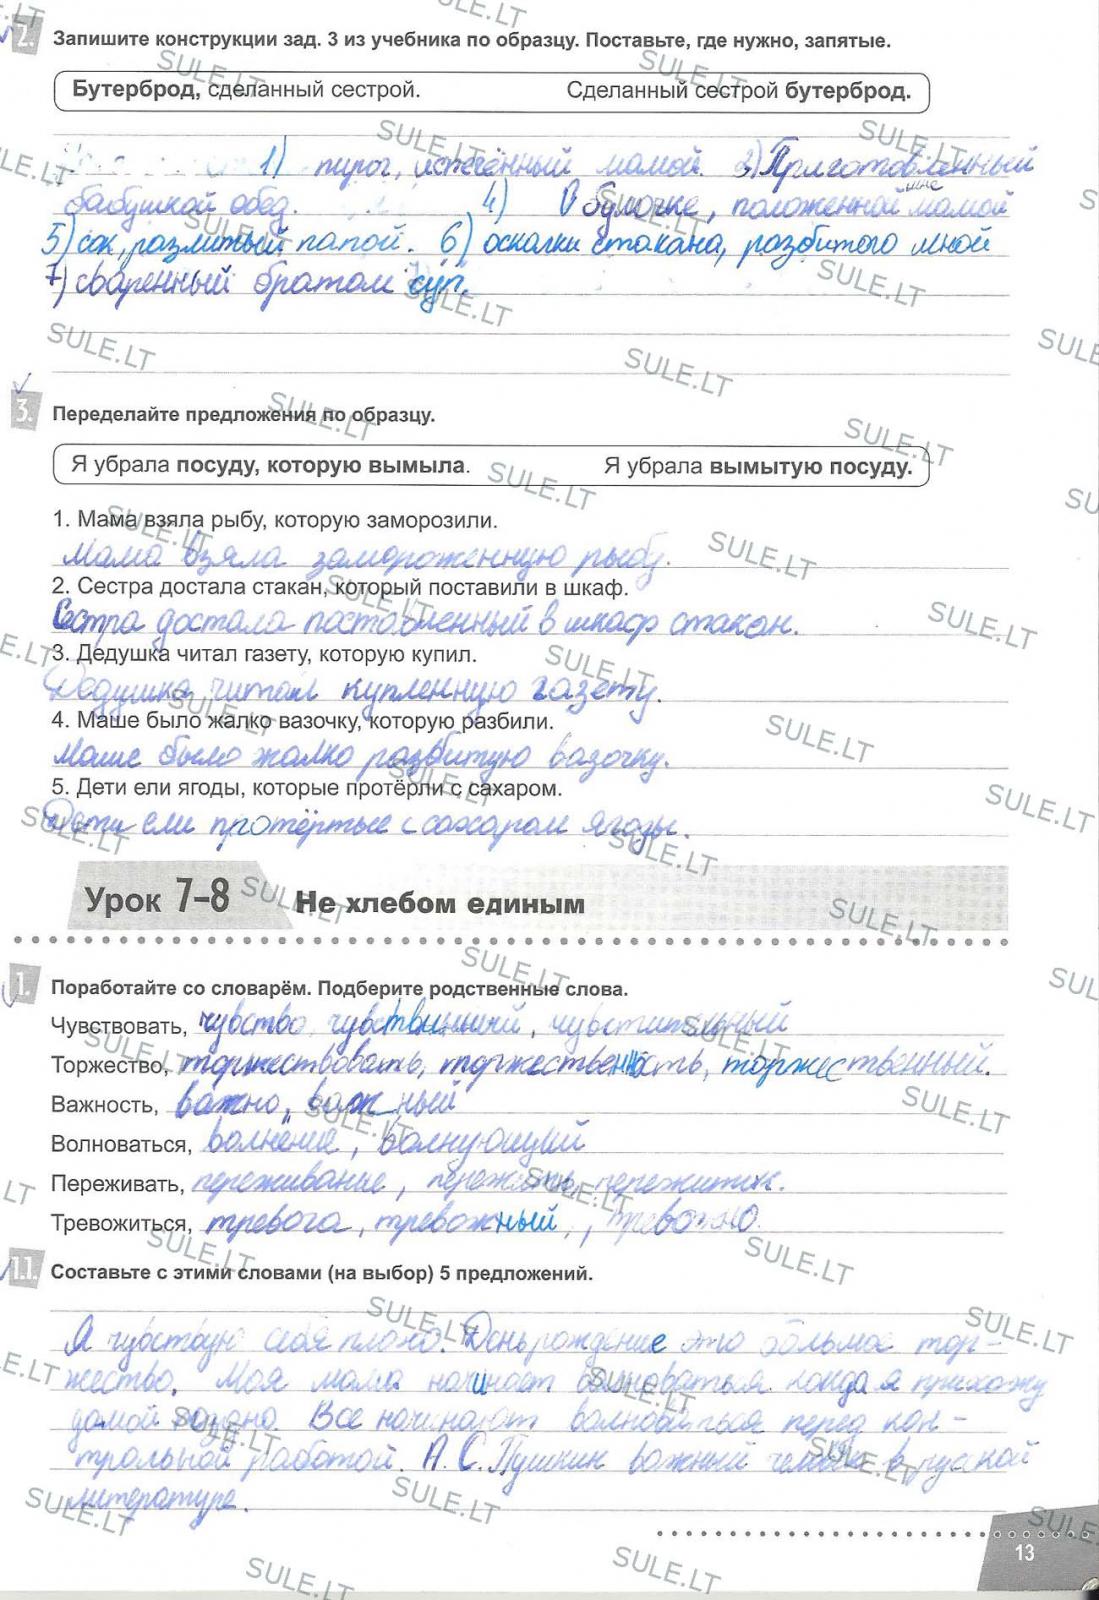 2. Запишите конструкции зад. 3 из учебника по образцу. Поставьте, где нужно, запятые.
Бутерброд, сделанный сестрой. Сделанный сестрой бутерброд.
1) пирог, испечённый мамой. 2) Приготовленный
мне
бабушкой обед. 4) В булочке, положенной мамой
5) сок, разлитый папой. 6) осколки стакана, разбитого мной
7) сваренный братом суп.
3. Переделайте предложения по образцу.
Я убрала посуду, которую вымыла. Я убрала вымытую посуду.
1. Мама взяла рыбу, которую заморозили.
Мама взяла замороженную рыбу.
2. Сестра достала стакан, который поставили в шкаф.
Сестра достала поставленный в шкаф стакан.
3. Дедушка читал газету, которую купил.
Дедушка читал купленную газету.
4. Маше было жалко вазочку, которую разбили.
Маше было жалко разбитую вазочку.
5. Дети ели ягоды, которые протёрли с сахаром.
Дети ели протёртые с сахаром ягоды.
Урок 7–8 Не хлебом единым
1. Поработайте со словарём. Подберите родственные слова.
Чувствовать, чувство, чувственный, чувствительный
Торжество, торжествовать, торжественность, торжественный.
Важность, важно, важный
Волноваться, волнение, волнующий
Переживать, переживание, пережиток.
Тревожиться, тревога, тревожный, тревожно.
1.1. Составьте с этими словами (на выбор) 5 предложений.
Я чувствую себя плохо. День рождение это большое тор-
жество. Моя мама начинает волноваться когда я прихожу
домой поздно. Все начинают волноваться перед кон-
трольной работой. А. С. Пушкин важный человек в русской
литературе.
13
SULE.LT